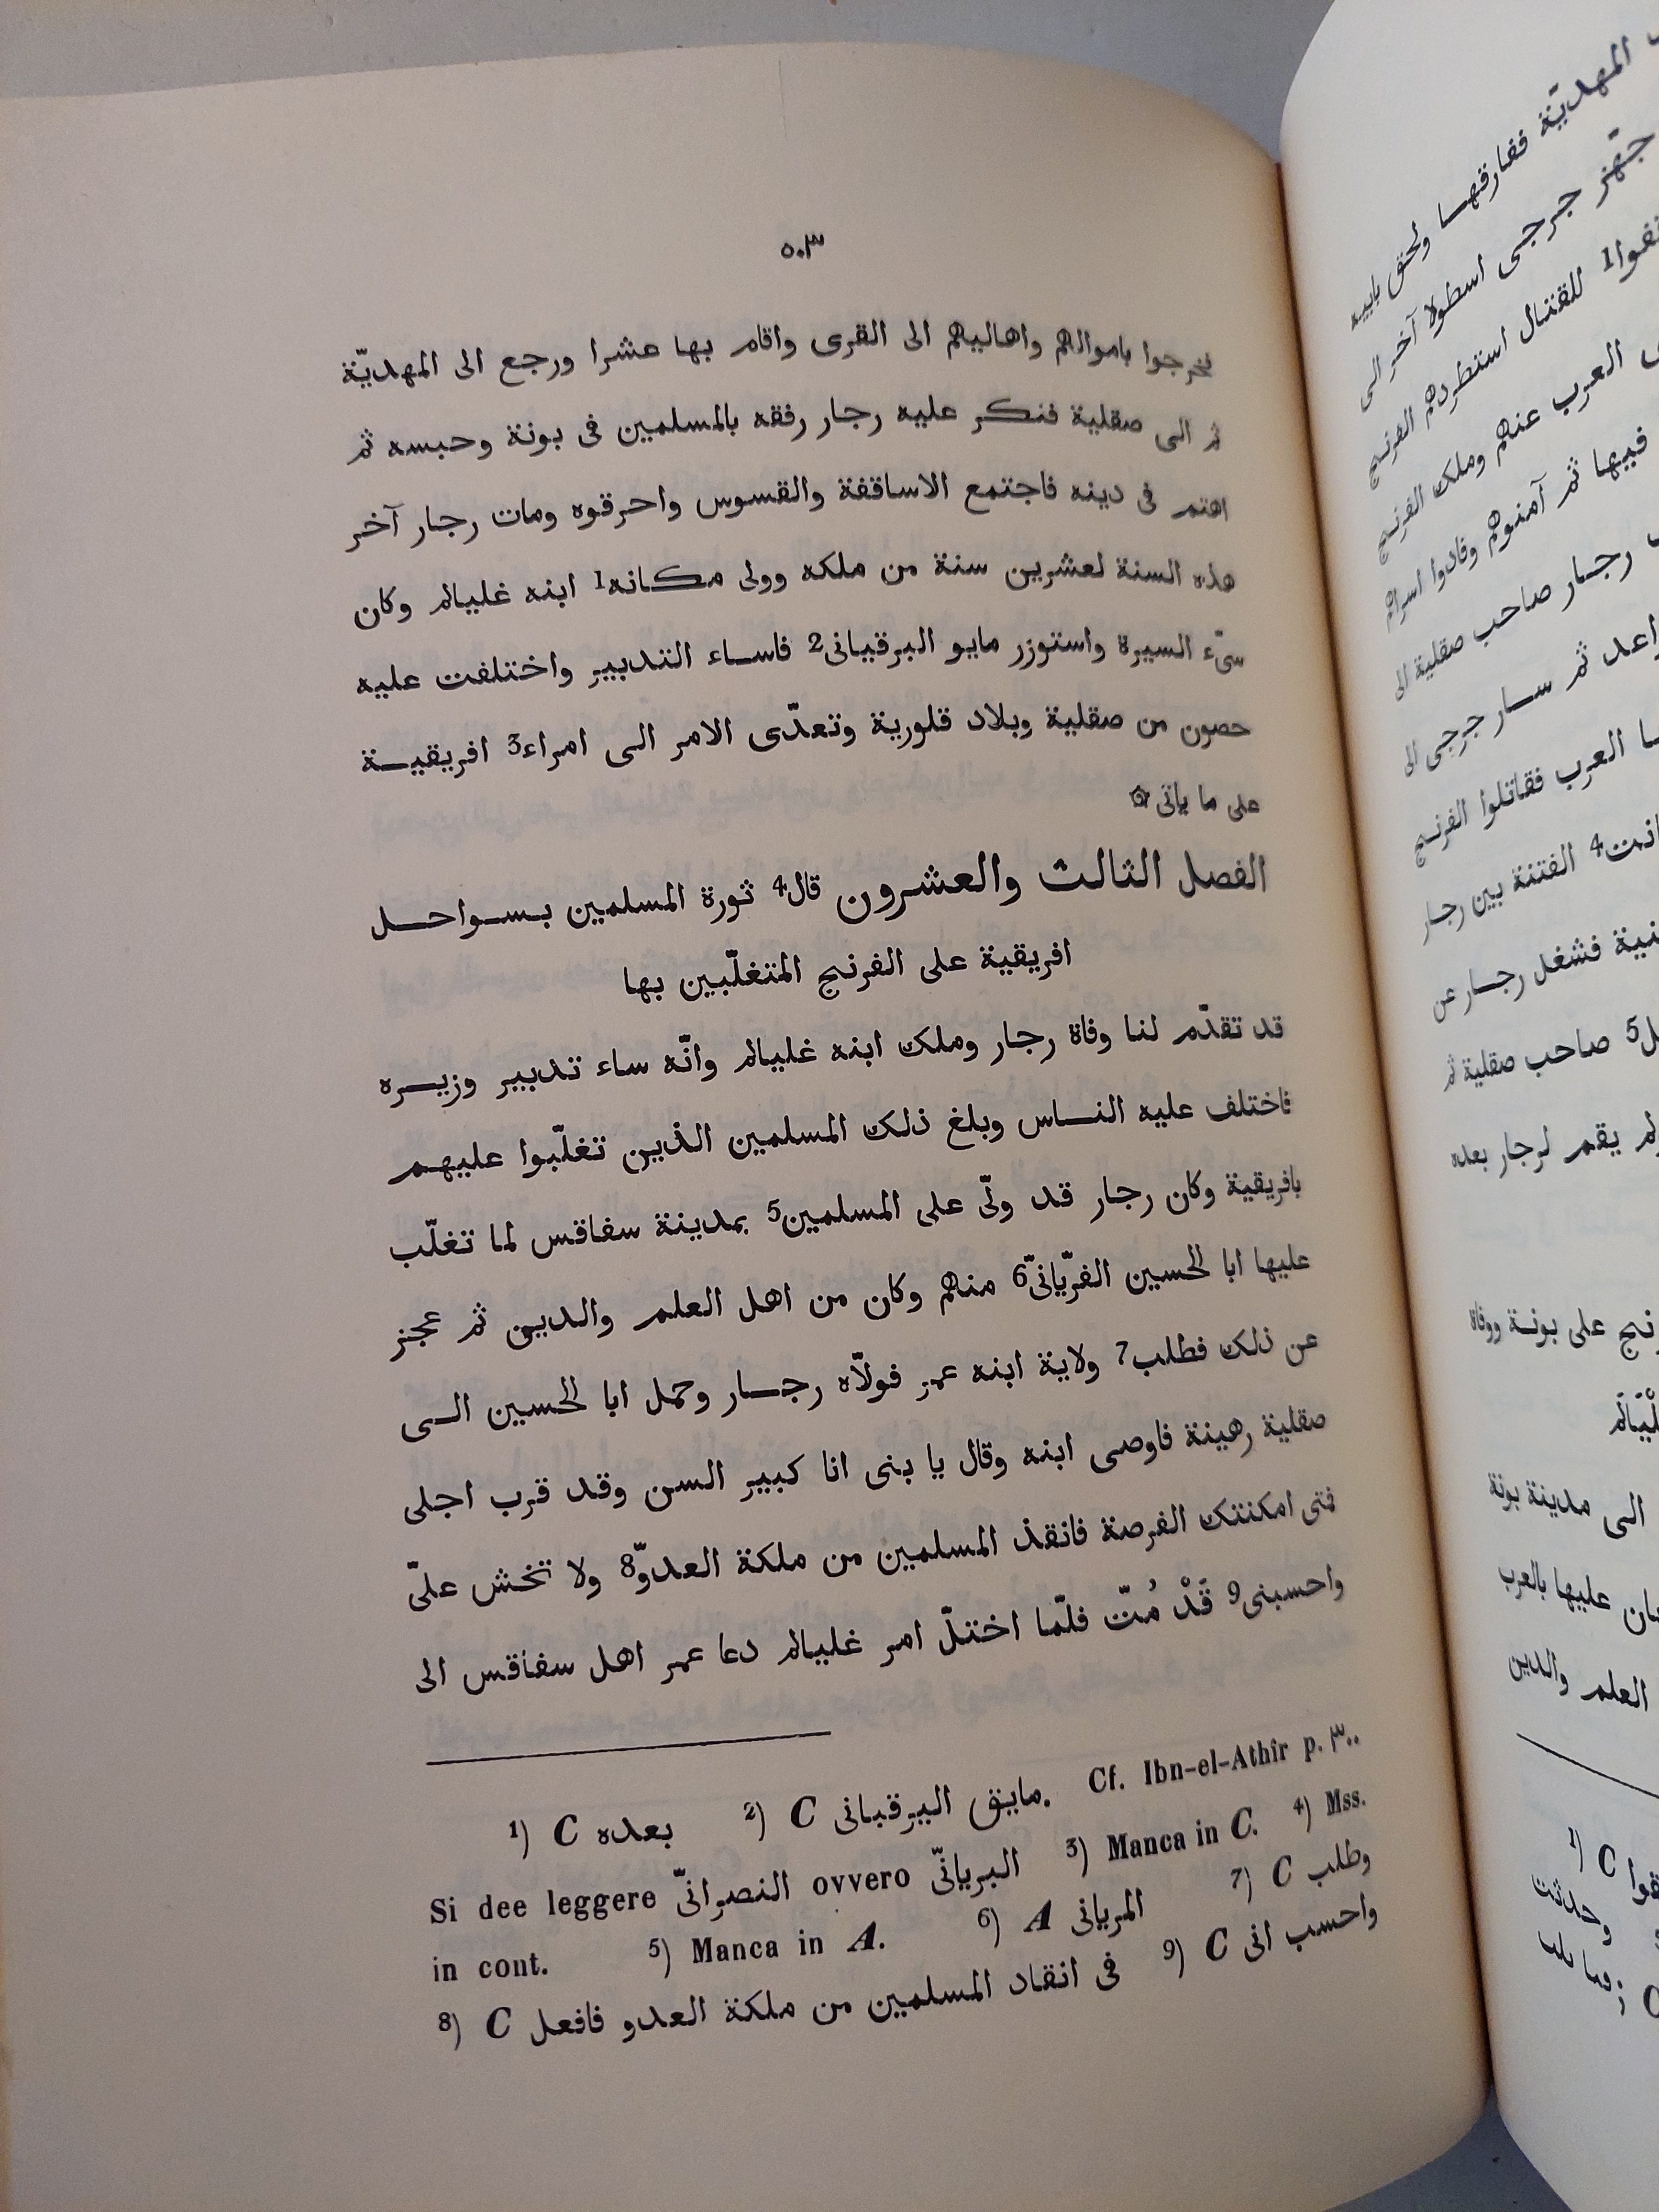 ٥٠٣
فخرجوا باموالهم واهاليهم الى القرى واقام بها عشرا ورجع الى المهديّة
ثم الى صقلية فنكر عليه رجار رفقه بالمسلمين فى بونة وحبسه ثم
اهتم فى دينه فاجتمع الاساقفة والقسوس واحرقوه ومات رجار آخر
هذه السنة لعشرين سنة من ملكه وولى مكانه1 ابنه غليالم وكان
سىّء السيرة واستوزر مايو البرقيانى2 فاساء التدبير واختلفت عليه
حصون من صقلية وبلاد قلورية وتعدّى الامر الى امراء3 افريقية
على ما ياتى ۞
الفصل الثالث والعشرون قال4 ثورة المسلمين بسواحل
افريقية على الفرنج المتغلّبين بها
قد تقدّم لنا وفاة رجار وملك ابنه غليالم وانّه ساء تدبير وزيره
فاختلف عليه الناس وبلغ ذلك المسلمين الذين تغلّبوا عليهم
بافريقية وكان رجار قد ولّى على المسلمين5 بمدينة سفاقس لما تغلّب
عليها ابا الحسين الفرّيانىّ6 منهم وكان من اهل العلم والدين ثم عجز
عن ذلك فطلب7 ولاية ابنه عمر فولّاه رجار وحمل ابا الحسين الى
صقلية رهينة فاوصى ابنه وقال يا بنى انا كبير السن وقد قرب اجلى
فتى امكنتك الفرصة فانقذ المسلمين من ملكة العدوّ8 ولا تخش علىّ
واحسبنى9 قَدْ مُتّ فلمّا اختلّ امر غليالم دعا عمر اهل سفاقس الى
1) C بعده 2) C مايق البرقبانى. Cf. Ibn-el-Athîr p. ٣٠٠
Si dee leggere النصرانىّ ovvero البريانىّ 3) Manca in C. 4) Mss.
in cont. 5) Manca in A. 6) A المريانى 7) C وطلب
8) C فى انقاد المسلمين من ملكة العدو فافعل 9) C واحسب انى
المهديّة ففارقها ولحق بابيه
جهّز جرجى اسطولا آخر الى
للقتال استطردهم الفرنج
العرب عنهم وملك الفرنج
فيها ثم آمنوهم وفادوا اسراهم
رجار صاحب صقلية الى
ثم سار جرجى الى
العرب فقاتلوا الفرنج
الفتنة بين رجار
فشغل رجار عن
صاحب صقلية ثم
يقم لرجار بعده
على بونة ووفاة
الى مدينة بونة
عليها بالعرب
العلم والدين
1) C
وحدثت